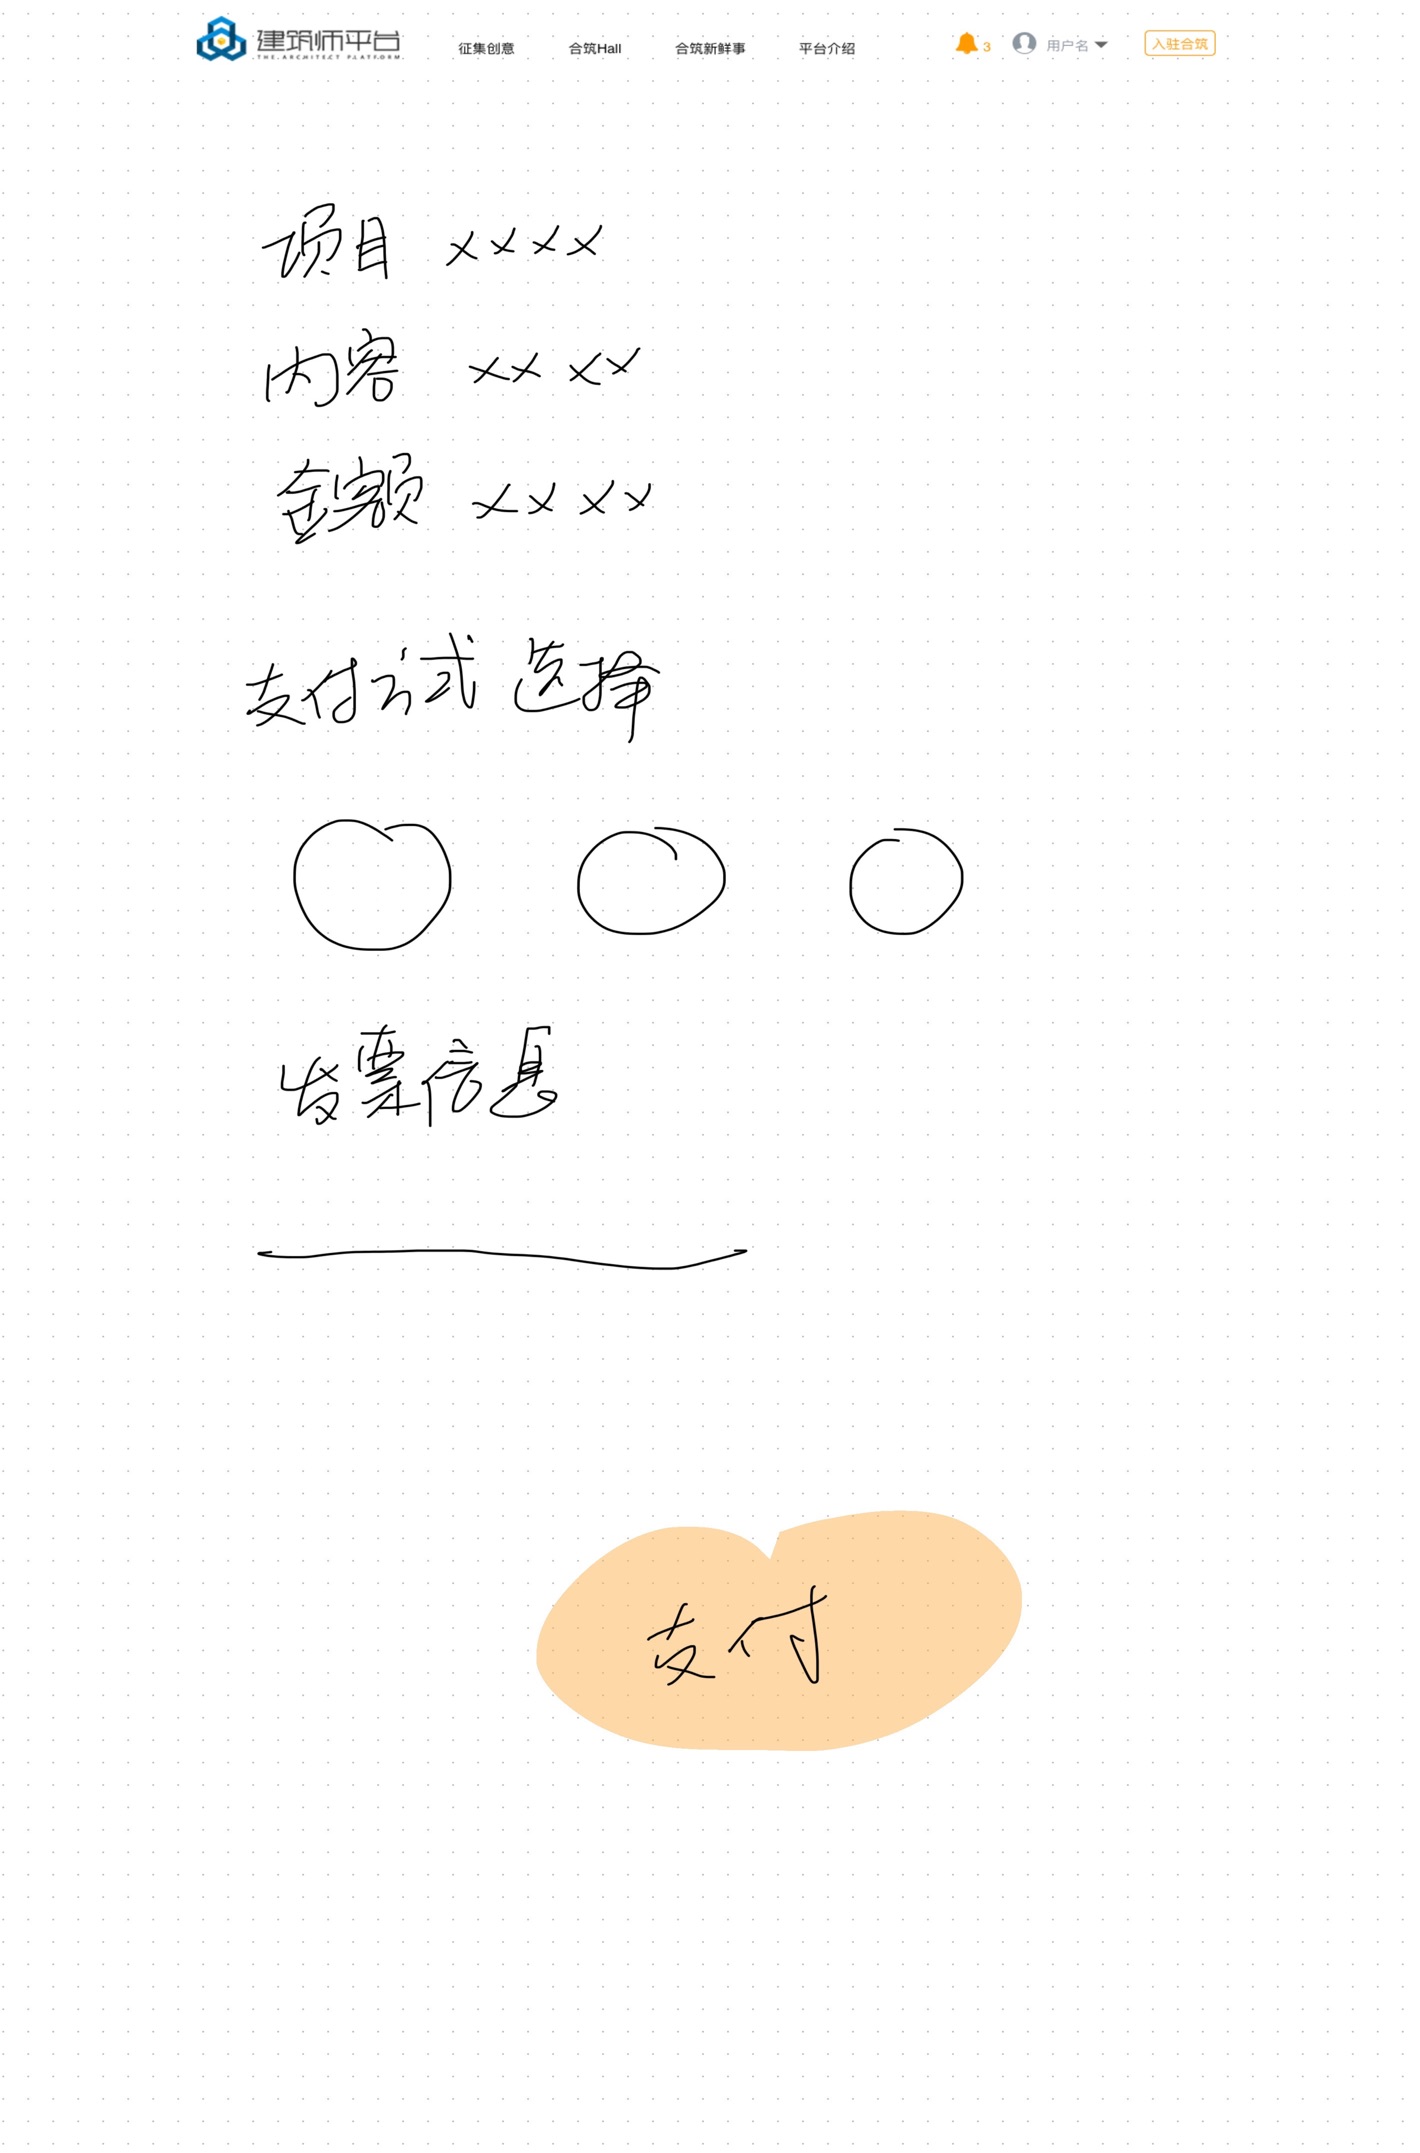 建筑师平台
THE ARCHITECT PLATFORM
征集创意 合筑Hall 合筑新鲜事 平台介绍 3 用户名 入驻合筑
项目 xxxx
内容 xxxx
金额 xxxx
支付方式选择
发票信息
支付